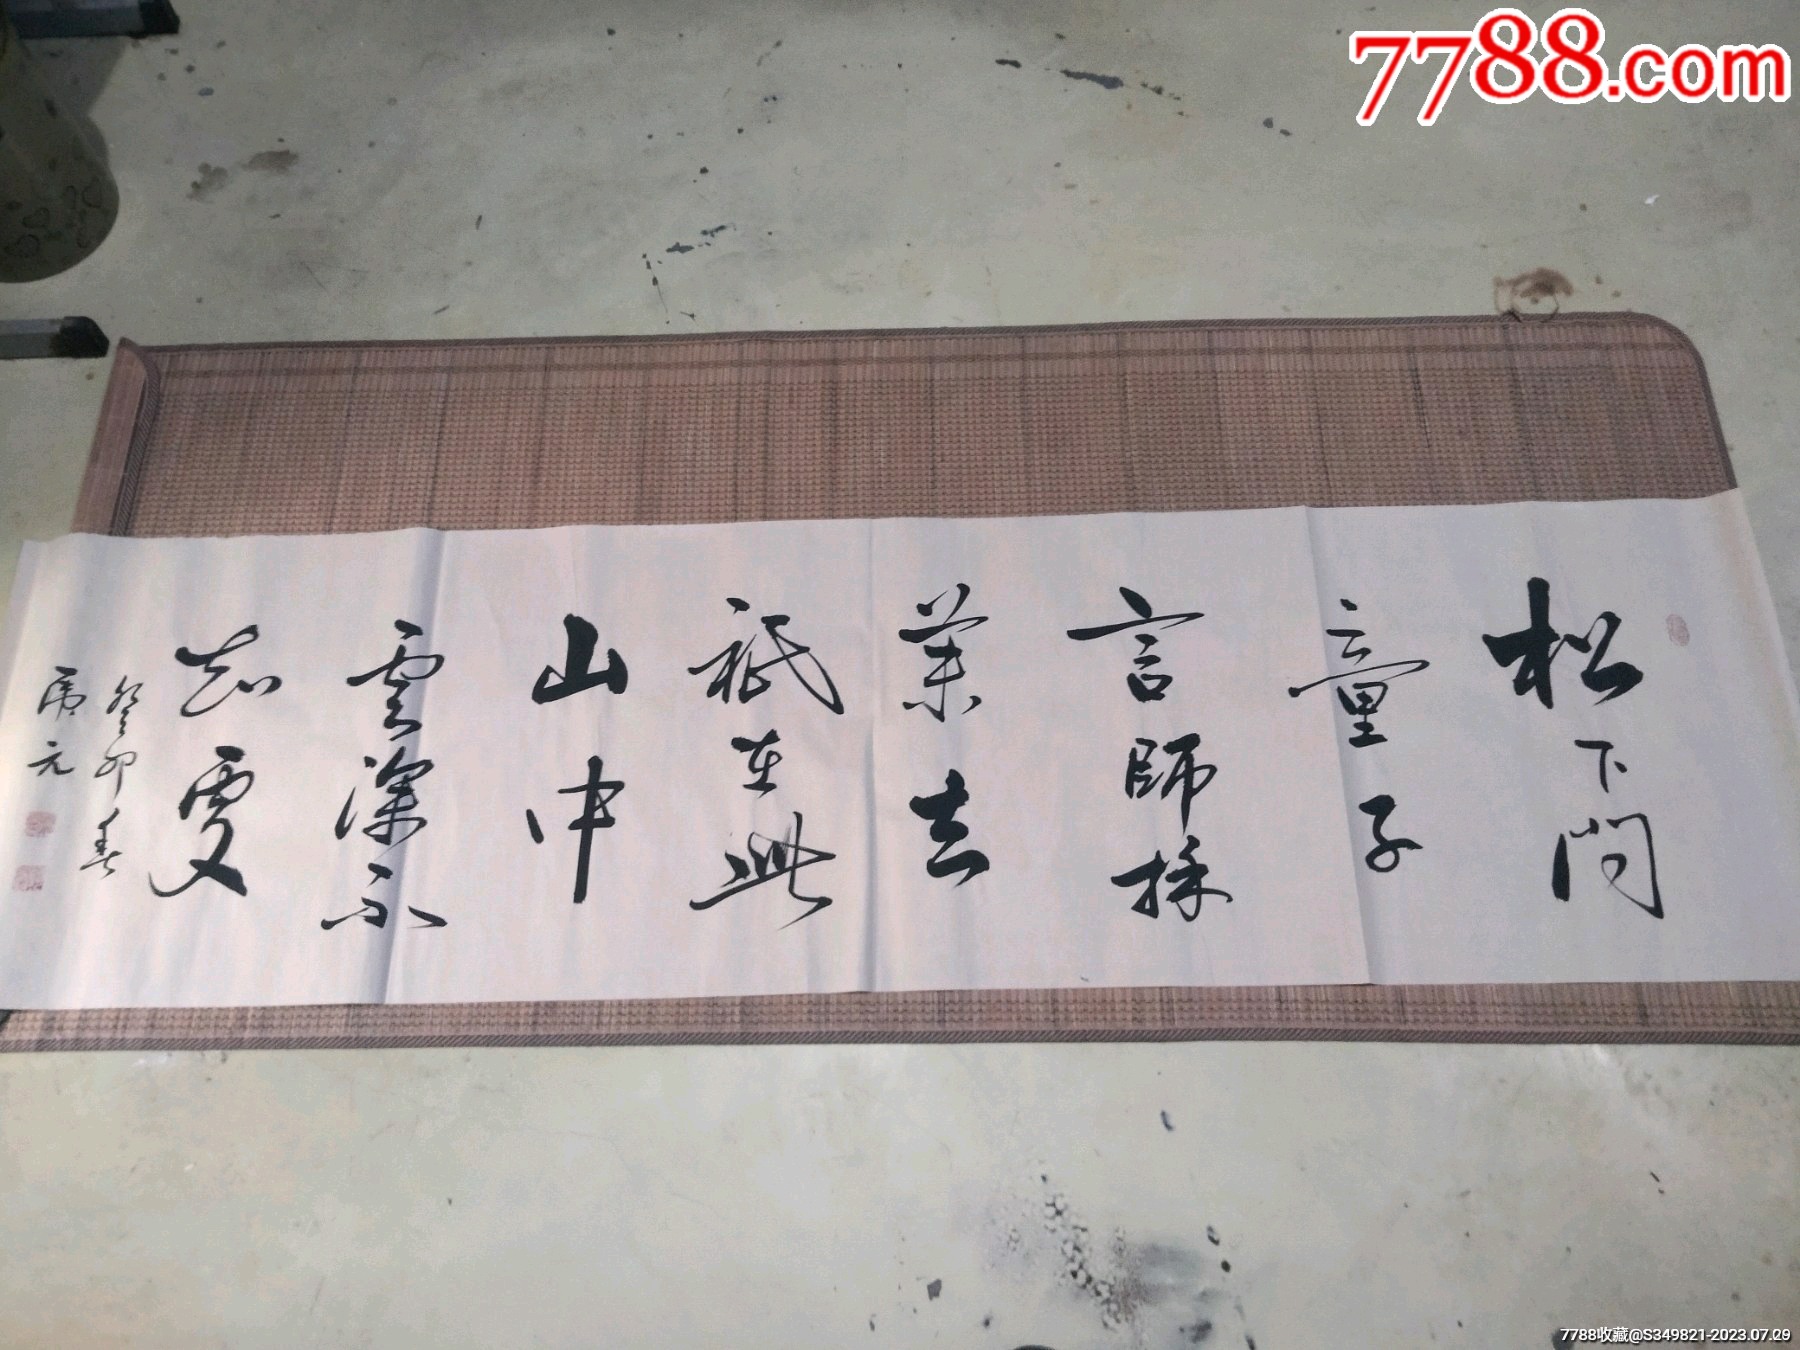 7788.com
松下問
童子
言師採
藥去
祇在此
山中
雲深不
知處
癸卯春
虎元
7788收藏@S349821-2023.07.29